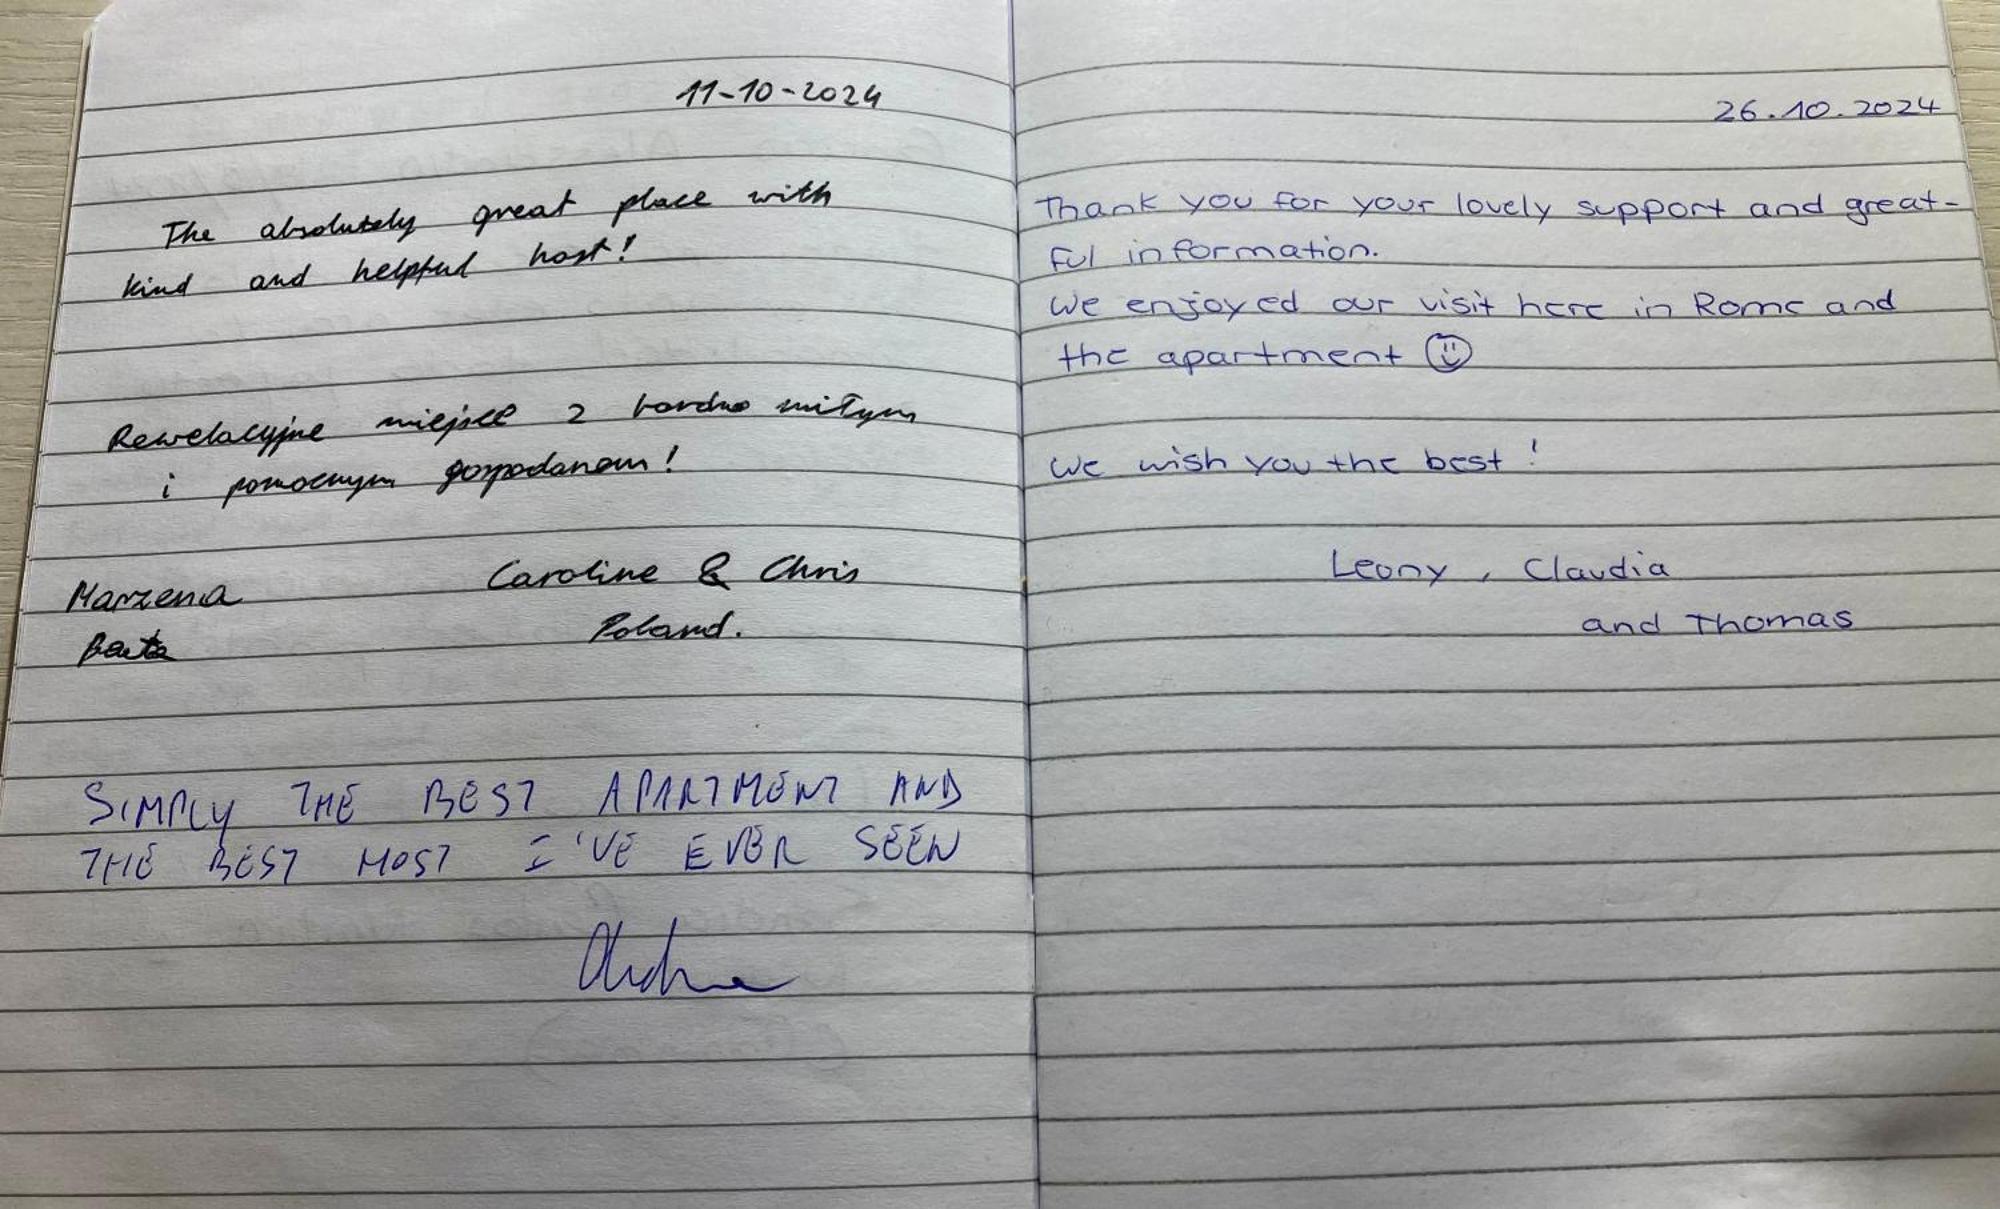 11-10-2024
The absolutely great place with
kind and helpful host!
Rewelacyjne miejsce z bardzo miłym
i pomocnym gospodarzem!
Marzena
Caroline & Chris
Poland.
SIMPLY THE BEST APARTMENT AND
THE BEST HOST I'VE EVER SEEN
26.10.2024
Thank you for your lovely support and great-
ful information.
We enjoyed our visit here in Rome and
the apartment
We wish you the best!
Leony, Claudia
and Thomas